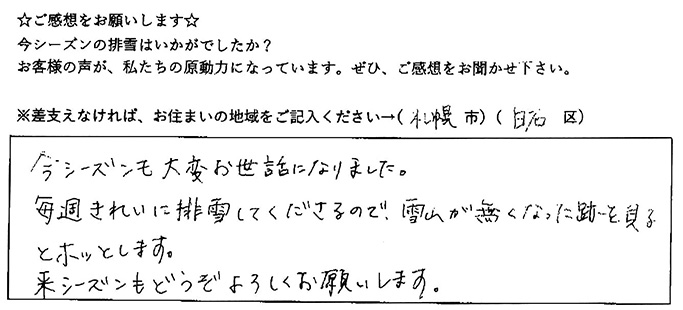 ☆ご感想をお願いします☆
今シーズンの排雪はいかがでしたか？
お客様の声が、私たちの原動力になっています。ぜひ、ご感想をお聞かせ下さい。
※差支えなければ、お住まいの地域をご記入ください→( 札幌 市) ( 白石 区)
今シーズンも大変お世話になりました。
毎週きれいに排雪してくださるので、雪山が無くなった跡を見る
とホッとします。
来シーズンもどうぞよろしくお願いします。